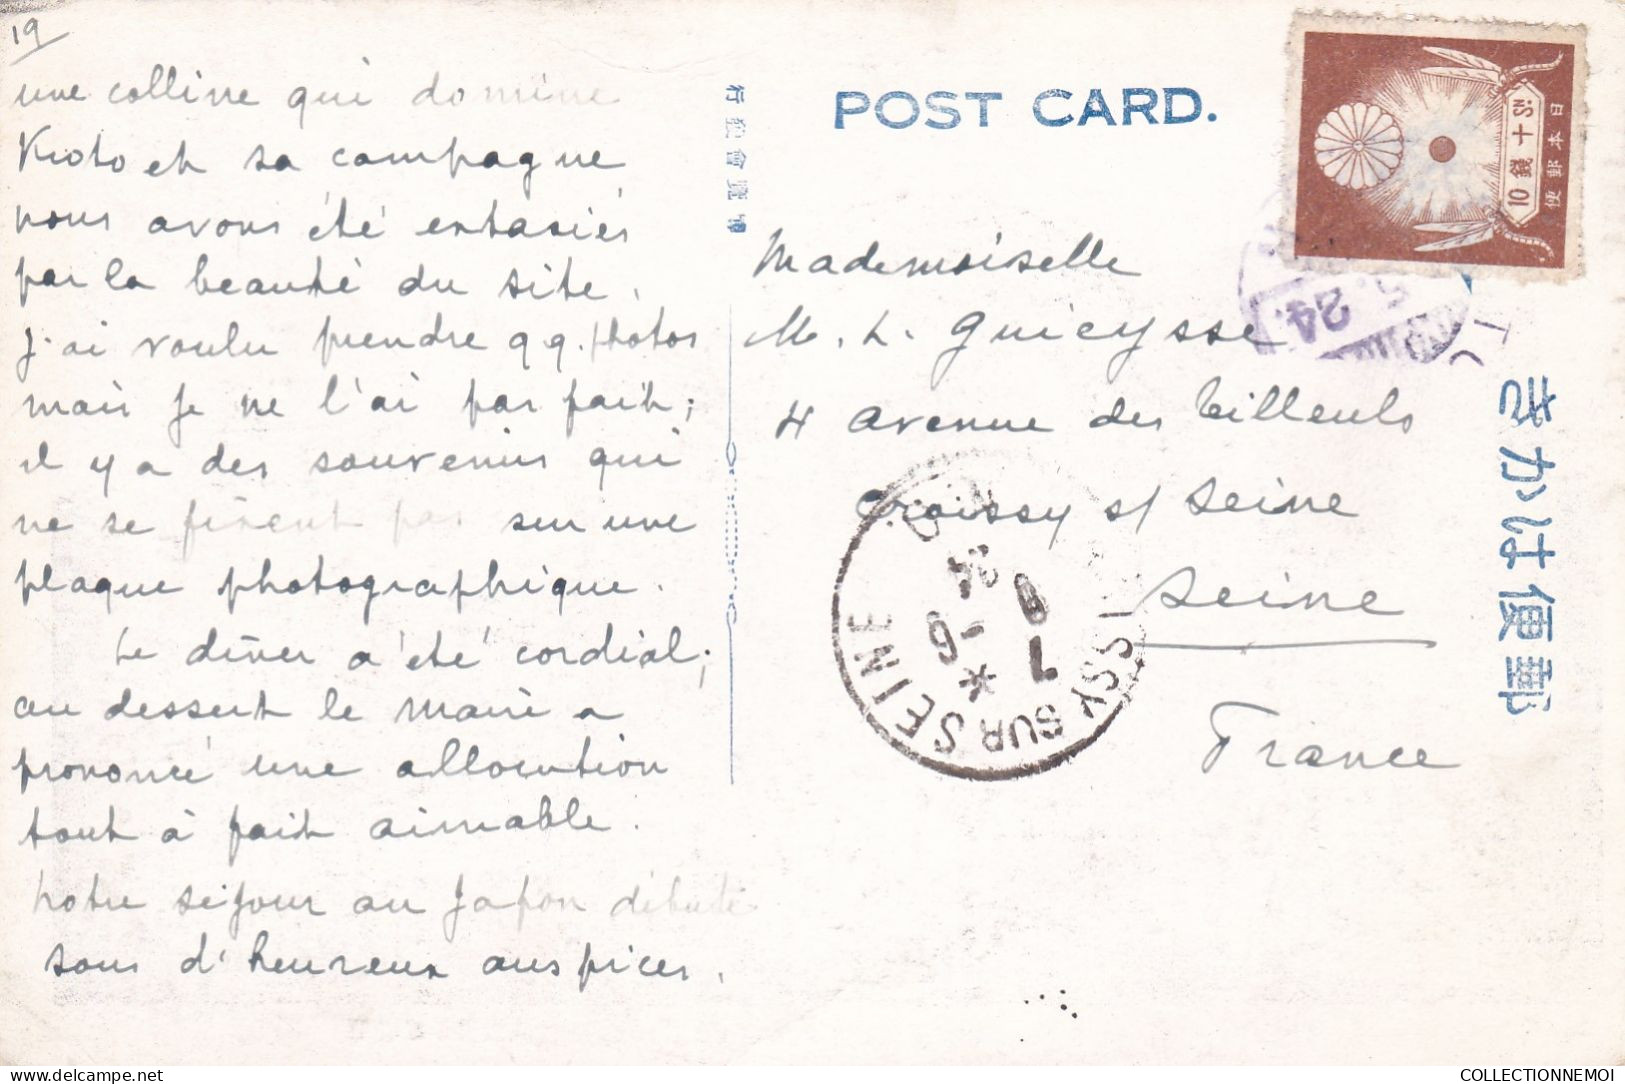 19
une colline qui domine
Kioto et sa campagne
nous avons été extasiés
par la beauté du site.
J'ai voulu prendre qq. photos
mais je ne l'ai pas fait;
il y a des souvenirs qui
ne se fixent pas sur une
plaque photographique.
Le dîner a été cordial;
au dessert le maire a
prononcé une allocution
tout à fait aimable.
Notre séjour au Japon débute
sous d'heureux auspices.
POST CARD.
きかは便郵
日本郵便
10 銭十 Sn.
24.
Mademoiselle
M. L. Guieysse
4 avenue des Tilleuls
Croissy s/ Seine
Seine
France
SUR SEINE
7 8
* 9 - 24
COLLECTIONNEMOI